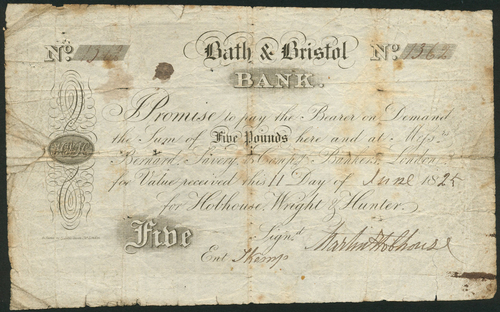 No. 1362 Bath & Bristol No. 1362
BANK.
I Promise to pay the Bearer on Demand
the Sum of Five Pounds here and at Messrs.
Bernard, Savery & Compy. Bankers, London,
for Value received this 11 Day of June 1825
for Hobhouse, Wright & Hunter.
Five Signd. Martin Hobhouse
Entd.